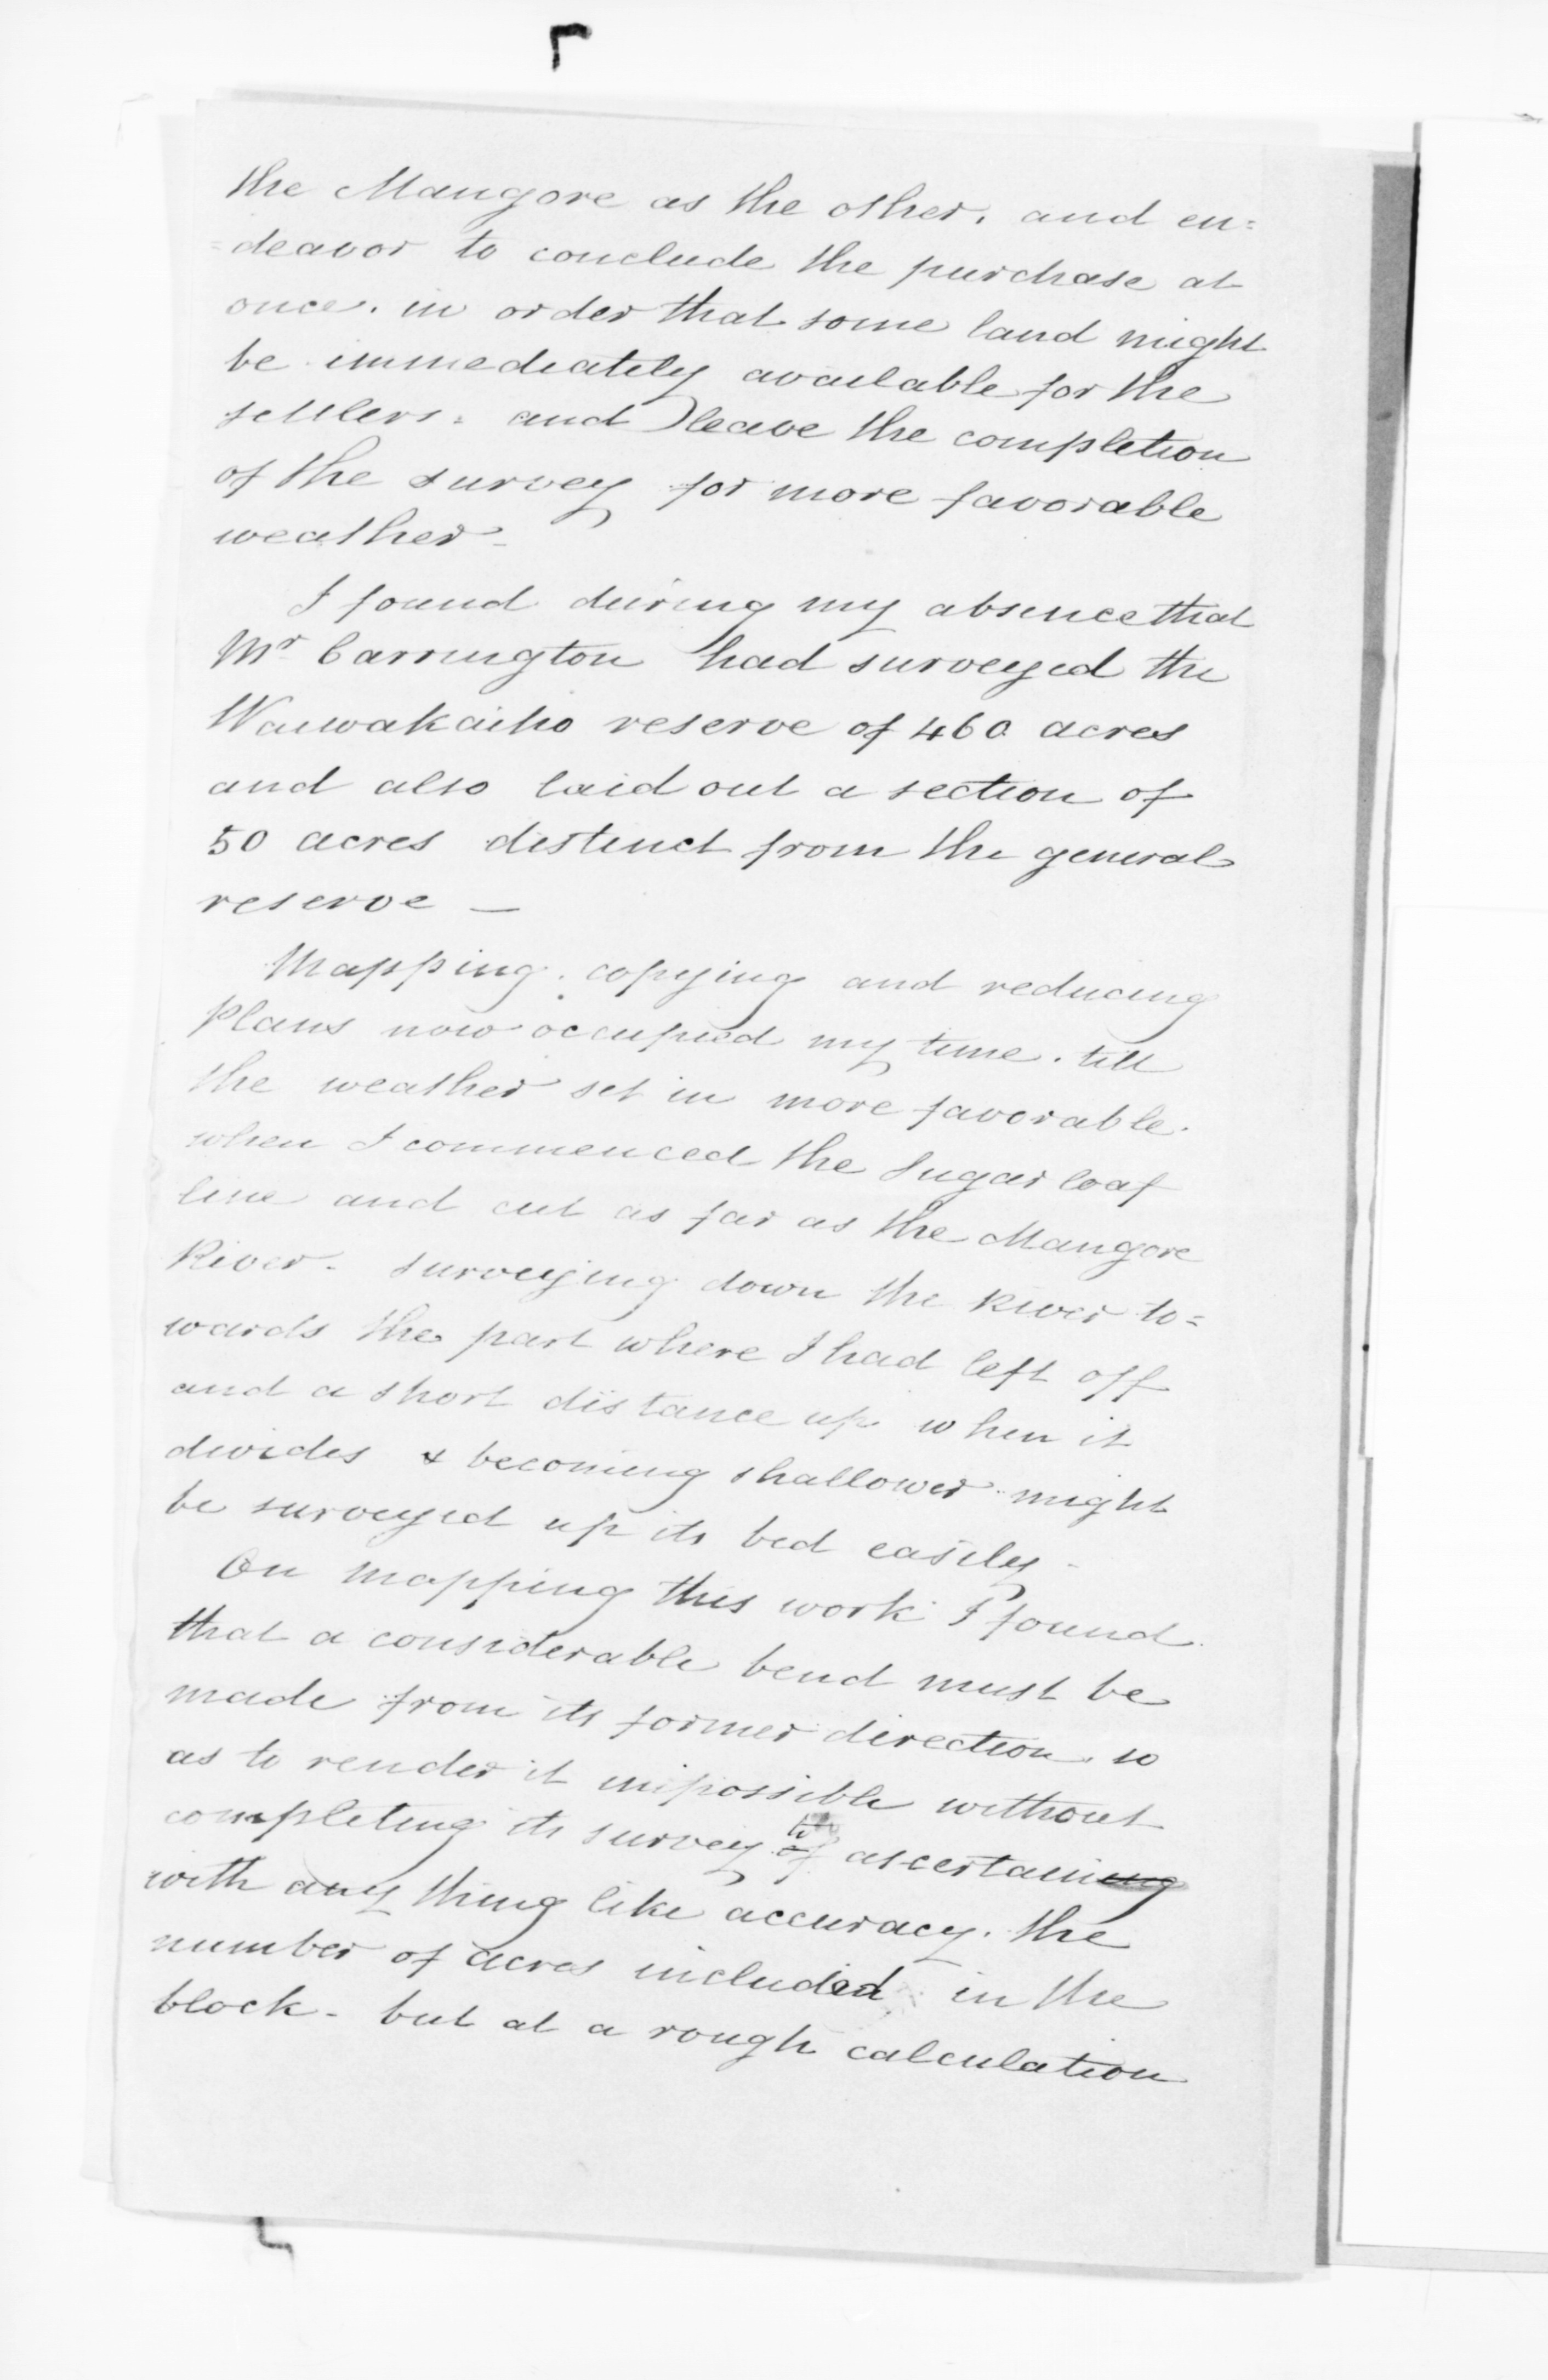 the Mangore as the other, and en=
=deavor to conclude the purchase at
once. in order that some land might
be immediately available for the
settlers. and leave the completion
of the survey for more favorable
weather-
I found during my absence that
Mr Carrington had surveyed the
Waiwakaiho reserve of 460 acres
and also laid out a section of
50 acres distinct from the general
reserve —
Mapping. copying and reducing
plans now occupied my time. till
the weather set in more favorable.
when I commenced the Sugar loaf
line and cut as far as the Mangore
River. surveying down the River to=
wards the part where I had left off
and a short distance up when it
divides & becoming shallower might
be surveyed up its bed easily-
On mapping this work I found
that a considerable bend must be
made from its former direction. so
as to render it impossible without
completing its survey of to ascertaining
with any thing like accuracy. the
number of acres included in the
block- but at a rough calculation